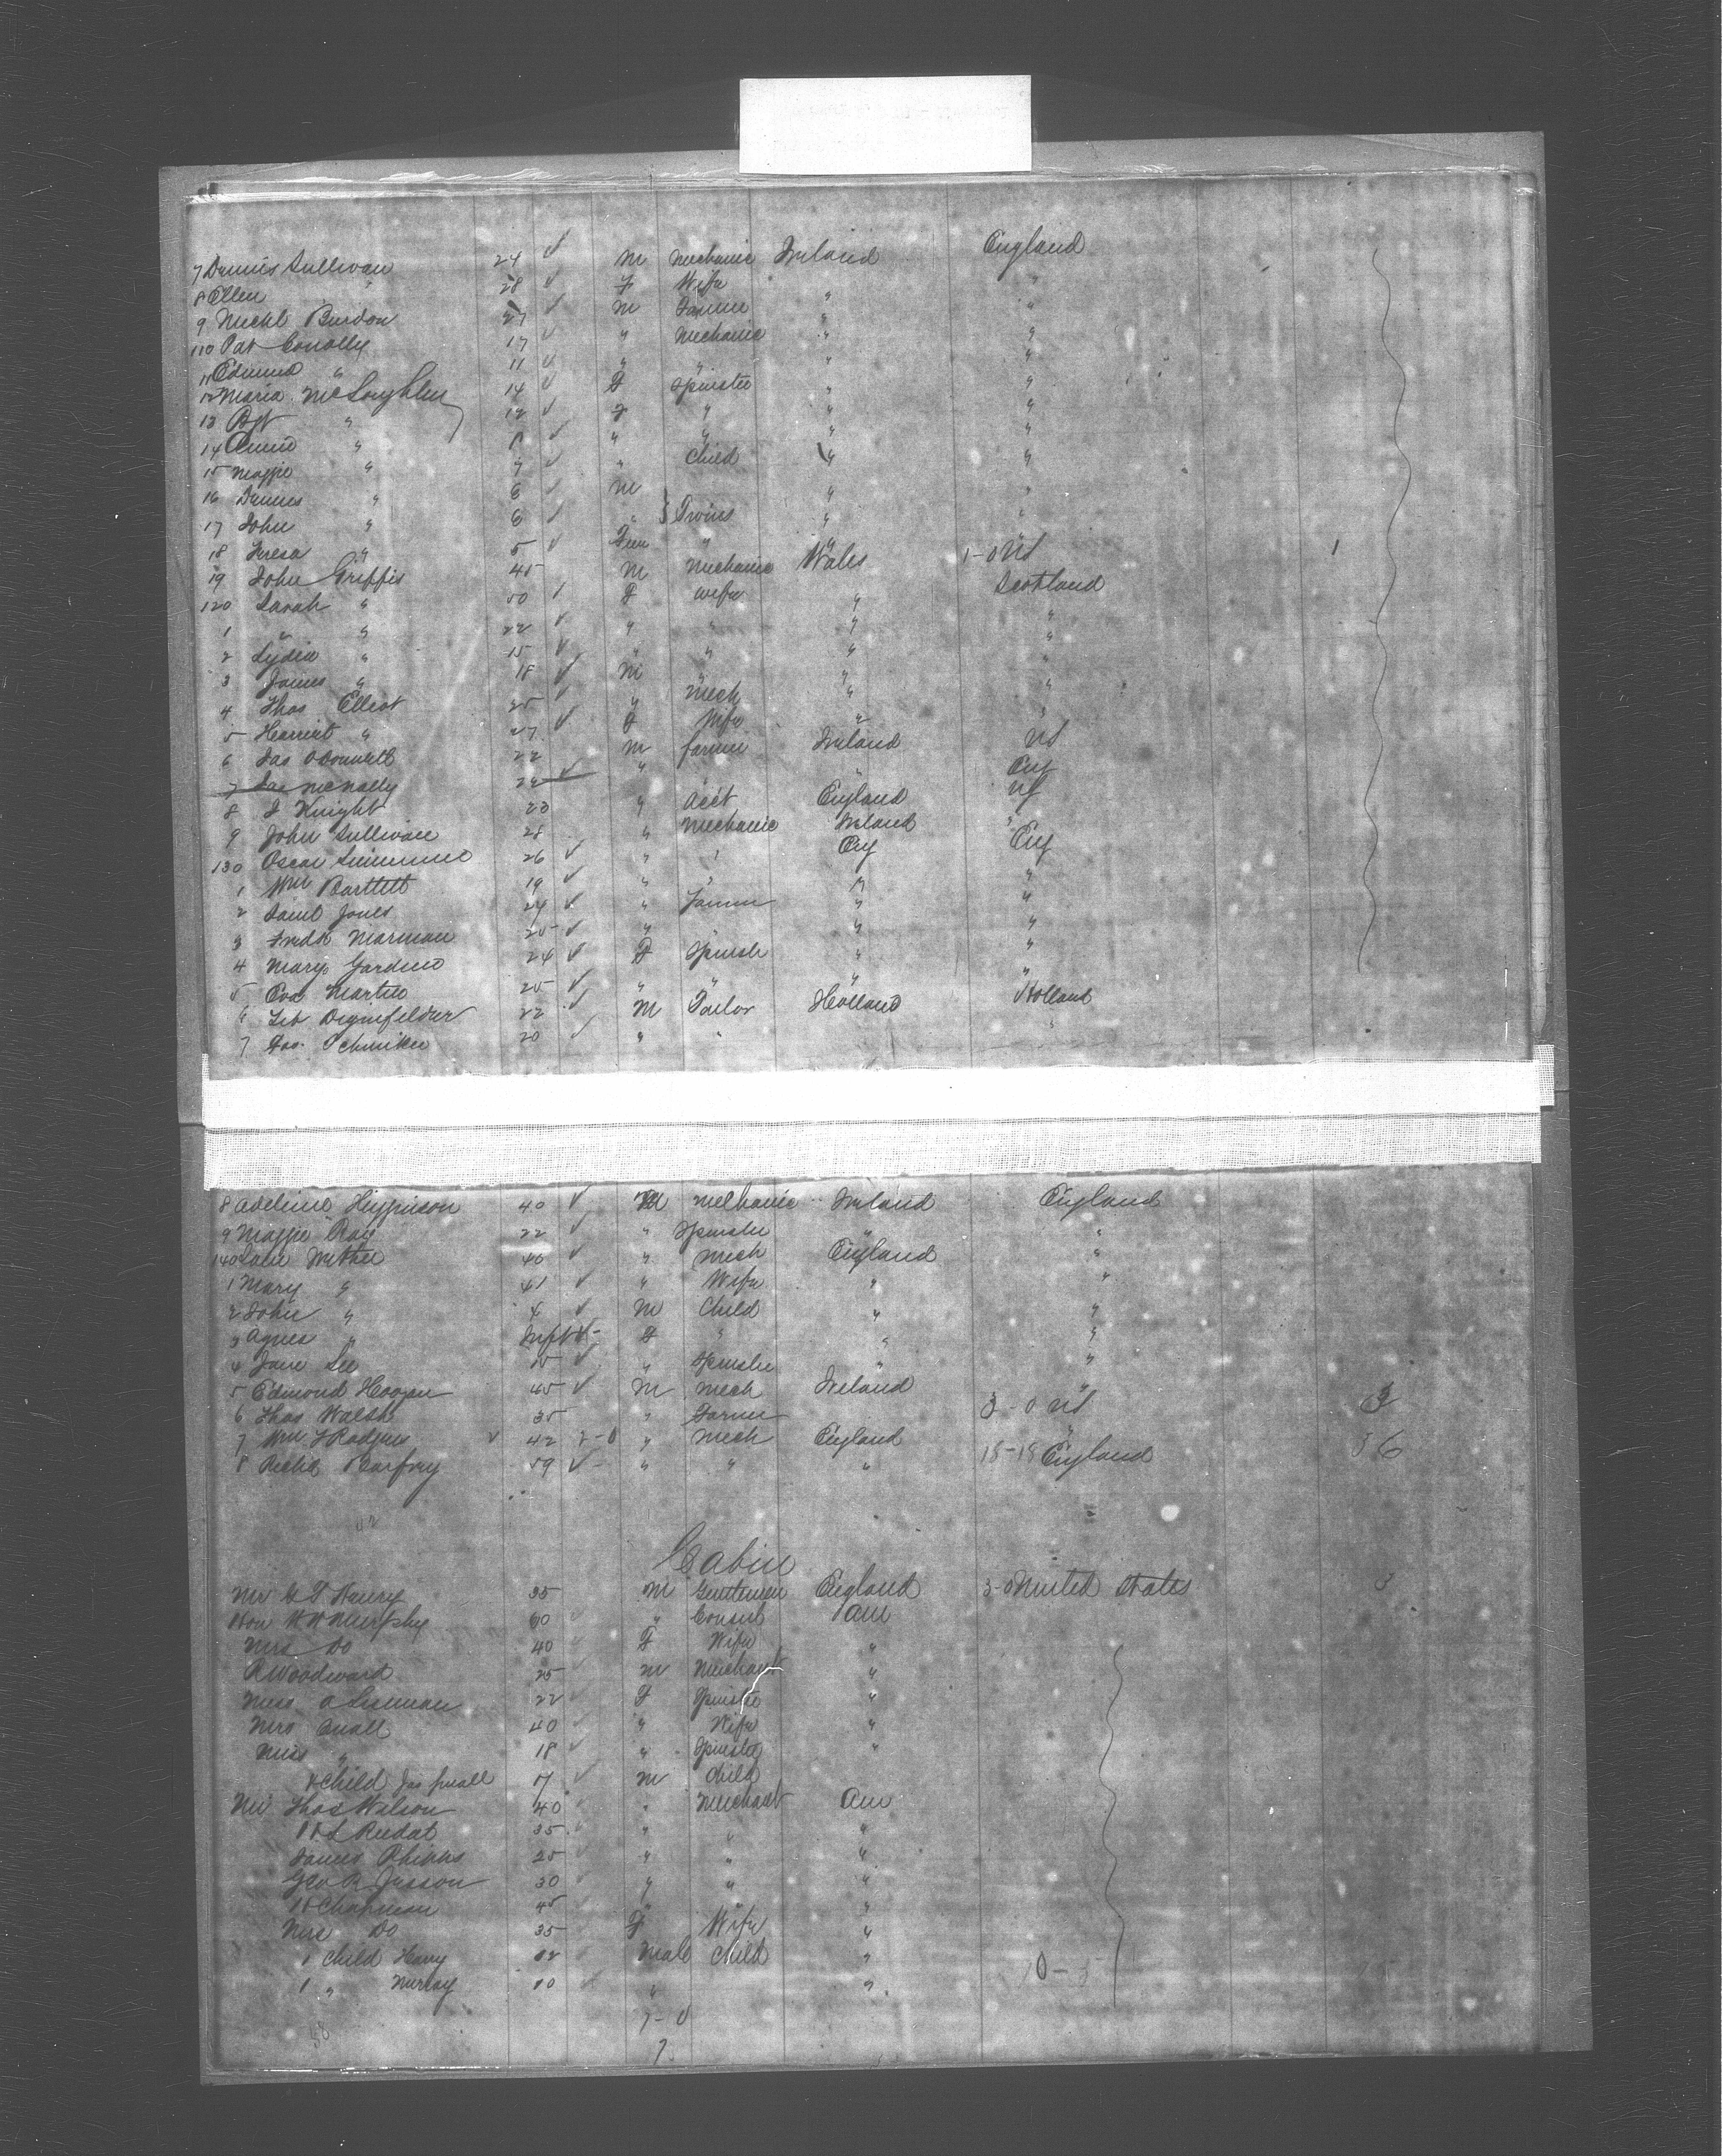 7 Dennis Sullivan 24 ✓ M Mechanic Ireland England
8 Ellen " 28 ✓ F Wife " "
9 Michl Burdon 27 ✓ M Farmer " "
110 Pat Conolly 17 ✓ " Mechanic " "
11 Edmund " 11 ✓ " " " "
12 Maria McLoughlin 14 ✓ F Spinster " "
13 Bgt " 12 ✓ F " " "
14 Annie " ✓ " " " "
15 Maggie " 7 ✓ " Child " "
16 Dennis " 6 ✓ M " "
17 John " 6 ✓ " } Twins " "
18 Teresa " 5 ✓ Fem " "
19 John Griffis 45 M Mechanic Wales 1-0 US 1
120 Sarah " 50 ✓ F Wife " Scotland
1 " " 22 ✓ " " " "
2 Lydia " 15 ✓ " " " "
3 James " 18 ✓ M " " "
4 Thos Elliot 25 ✓ " Mech " "
5 Harriet " 27 ✓ F Wife " "
6 Jas ODonnell 22 M farmer Ireland US
7 Jas McNally 24 ✓ " " Eng
8 J Knight 23 " Acct England US
9 John Sullivan 28 " Mechanic Ireland "
130 Oscar 26 ✓ " " Eng Eng
1 Wm Bartlett 19 ✓ " " " "
2 Saml Jones 24 ✓ " Farmer " "
3 Fredk Marman 25 ✓ " " "
4 Mary Gardino 24 ✓ F Spinster " "
5 Eva Martin 25 ✓ " " " "
6 22 ✓ M Tailor Holland Holland
7 Jos. 20 ✓ " " "
8 Adeline Higginson 40 ✓ M Mechanic Ireland England
9 Maggie Ray 22 ✓ " Spinster " "
140 40 ✓ " Mech England "
1 Mary " 41 ✓ " Wife " "
2 John " 4 ✓ M Child " "
3 Agnes " Inft ✓- F " " "
4 Jane Lee ✓ " Spinster " "
5 Edmond Hoogan 45 ✓ M Mech Ireland "
6 Thos Walsh 35 " Farmer " 3-0 US 3
7 Wm Rodgers ✓ 42 2-0 " Mech England "
8 Richd 59 ✓- " " " 18-18 England 36
Cabin
Mr G F Henry 35 M Gentleman England 3-0 United States 3
Hon W W Murphy 60 " Consul Am
Mrs Do 40 F Wife "
R Woodward 25 M Merchant "
Miss A 22 F Spinster "
Mrs Small 40 " Wife "
Miss " 18 " Spinster "
1 Child Jas Small 7 ✓ M Child
Mr Thos Wilson 40 " Merchant Am
35 " " "
James Phipps 25 " " "
Geo R 30 " " "
H Chapman 45 " " "
Mrs Do 35 F Wife "
1 Child Harry 12 Male Child "
1 " Murray 10 " " 10-5
7-0
7
58